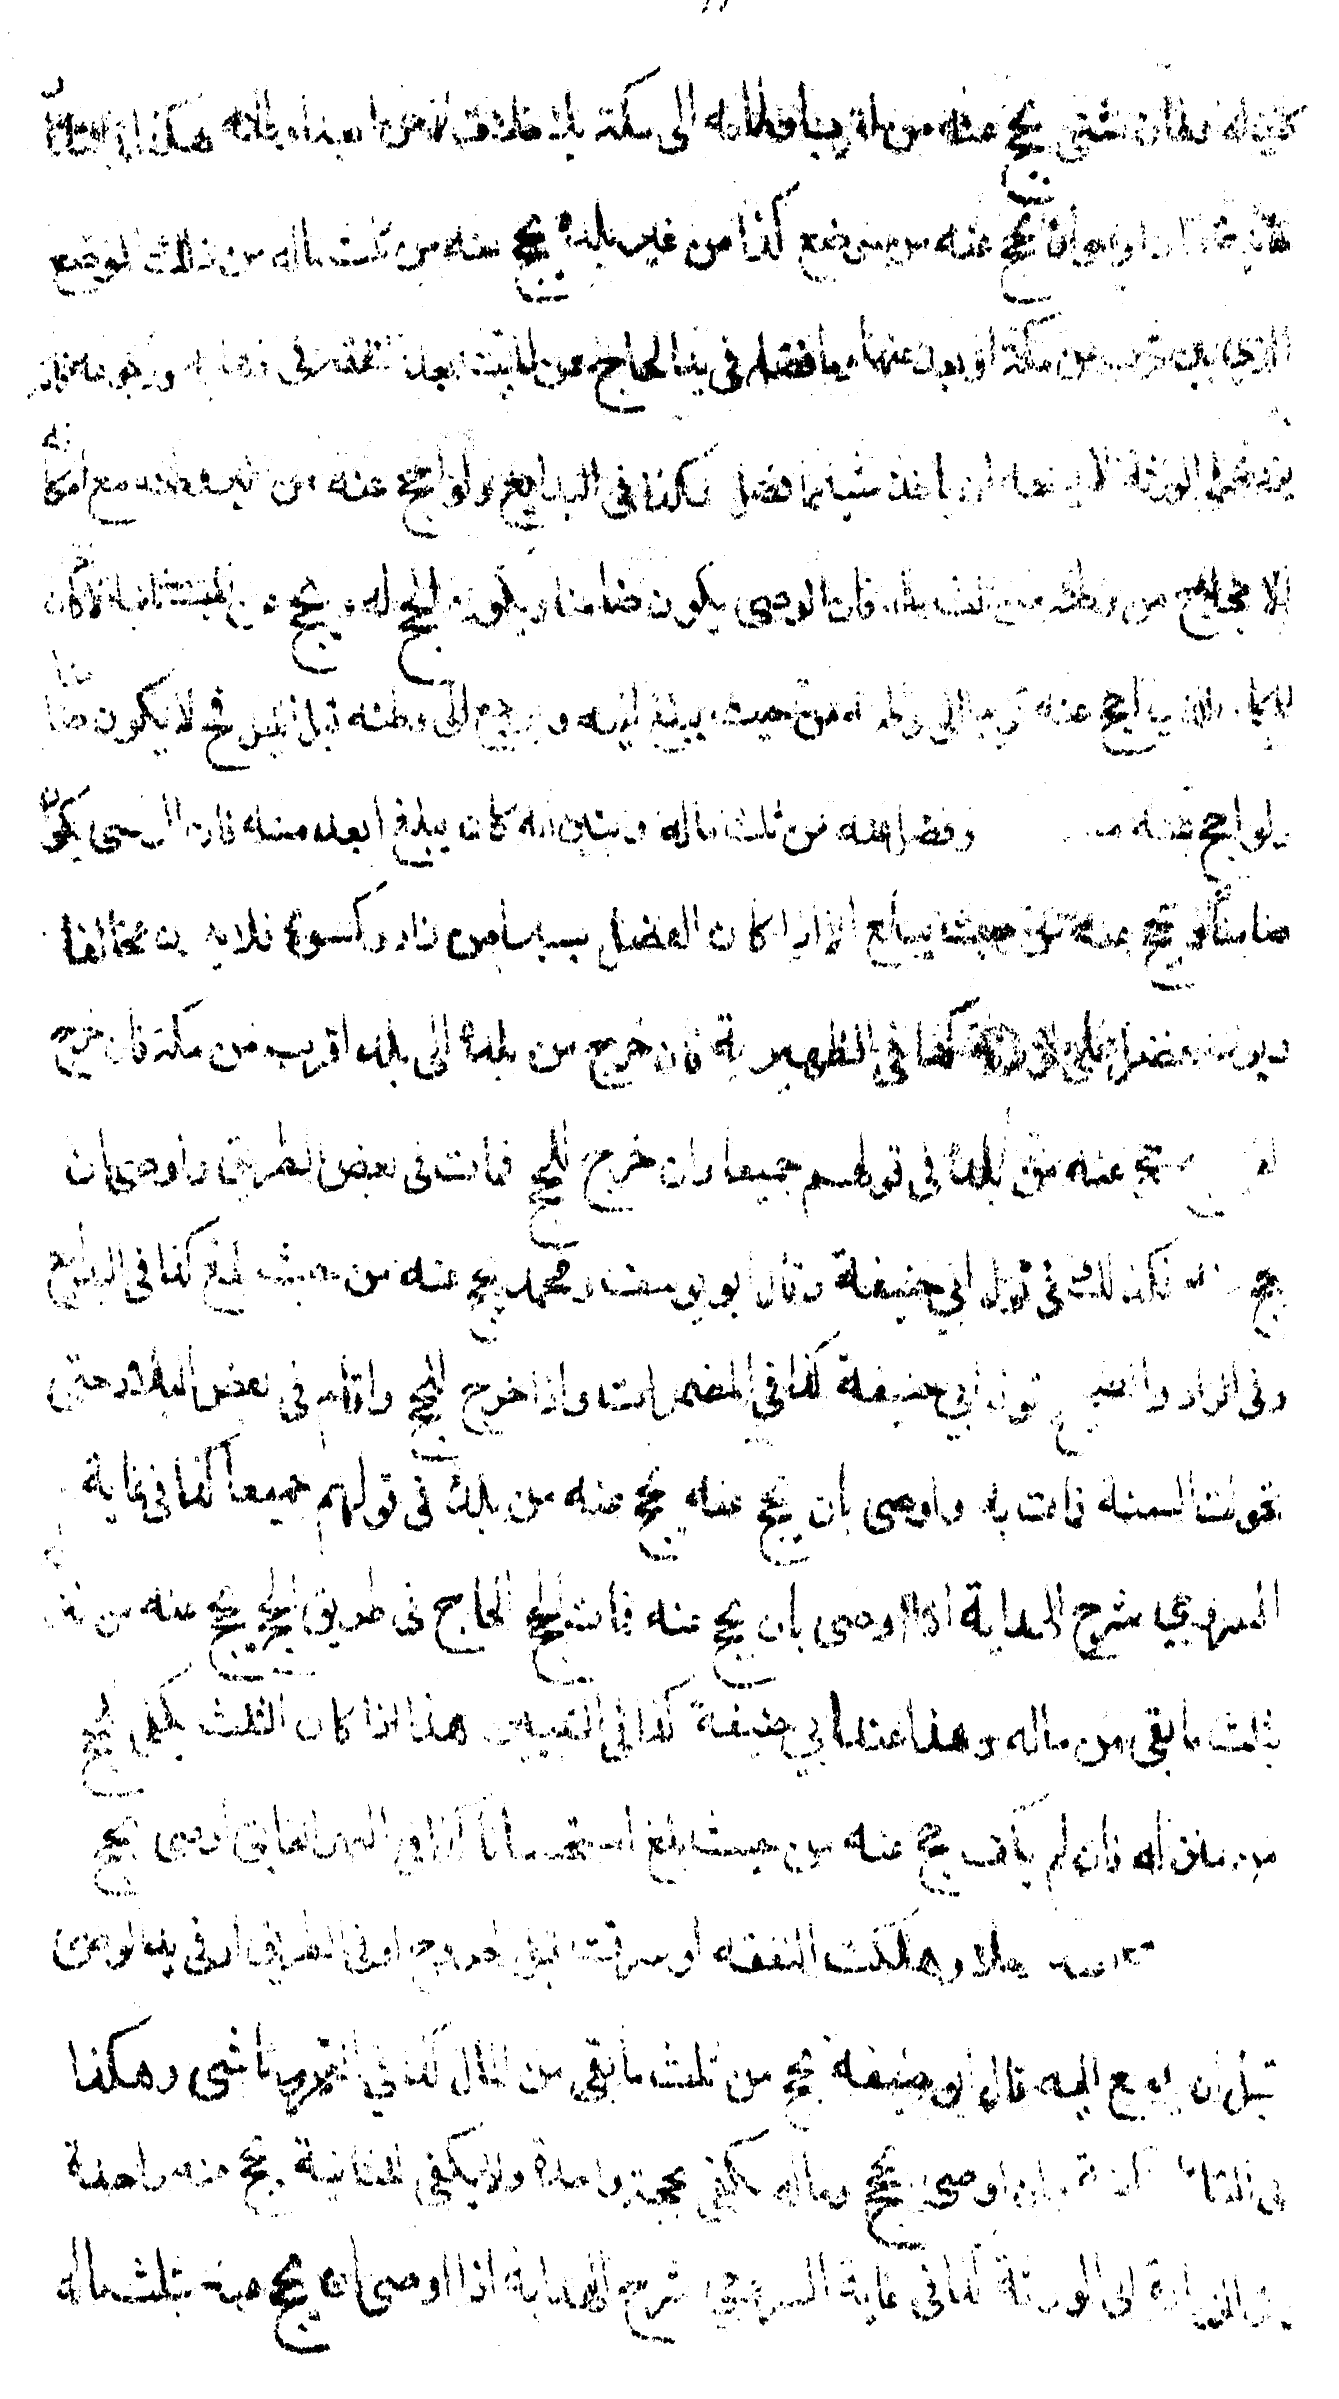 كان له وطان شتى يحج عنه من اقرب اوطانه الى مكة بلا خلاف لا من ابعد اوطانه هكذا
اوصى ان يحج عنه من موضع كذا من غير بلده يحج عنه من ثلث ماله من ذلك الموضع
الذي بين قرب من مكة او بعد عنها وما فضل في يد الحاج عن الميت بعد نفقته في ذهابه ورجوعه فانه
يرده على الورثة لا يسعه ان ياخذ شيئا مما فضل هكذا في البدايع ولو احج عنه من غير وطنه مع امكانه
الاحجاج من وطنه من ثلث ماله فان الوصى يكون ضامنا ويكون الحج له ويحج عن الميت ثانيا الا ان كان
المكان الذي احج عنه قريبا الى وطنه من حيث يبلغ اليه ويرجع الى وطنه قبل الليل فح لا يكون ضامنا
ولو احج عنه من وفضل عنه من ثلث ماله وتبين انه كان يبلغ ابعد منه فان الوصى يكون
ضامنا ويحج عنه من حيث يبلغ الا اذا كان الفضل يسيرا من زاد وكسوة فلا يكون مخالفا
ويرد الفضل على الورثة كذا في الظهيرية فان خرج من بلده الى بلد اقرب من مكة فان خرج
لغير يحج عنه من بلده في قولهم جميعا وان خرج للحج فمات في بعض الطريق واوصى بان
يحج عنه فكذلك في قول ابي حنيفة وقال ابو يوسف ومحمد يحج عنه من حيث بلغ كذا في البدايع
وفي الزاد والصحيح قول ابي حنيفة كذا في المضمرات واذا خرج للحج واقام في بعض البلاد حتى
تحولت السنة فمات به واوصى بان يحج عنه يحج عنه من بلده في قولهم جميعا كذا في غاية
السروجي شرح الهداية اذا اوصى بان يحج عنه فمات الحاج في طريق الحج يحج عنه من منزله
بثلث ما بقى من ماله وهذا عند ابي حنيفة كذا في التبيين هذا اذا كان الثلث يكفى للحج
من منزله فان لم يكف يحج عنه من حيث بلغ استحسانا كذا في النهر الفايق اوصى بحج
رجلا وهلكت النفقة او سرقت قبل الخروج او في الطريق او في يد الوصى
قبل ان يدفع اليه قال ابو حنيفة يحج من ثلث ما بقى من المال كذا في التمرتاشى وهكذا
ان اوصى بحج وماله يكفى بحجة واحدة ولا يكفى للثانية يحج عنه واحدة
الى الورثة كذا في غاية السروجي شرح الهداية اذا اوصى ان يحج عنه بثلث ماله